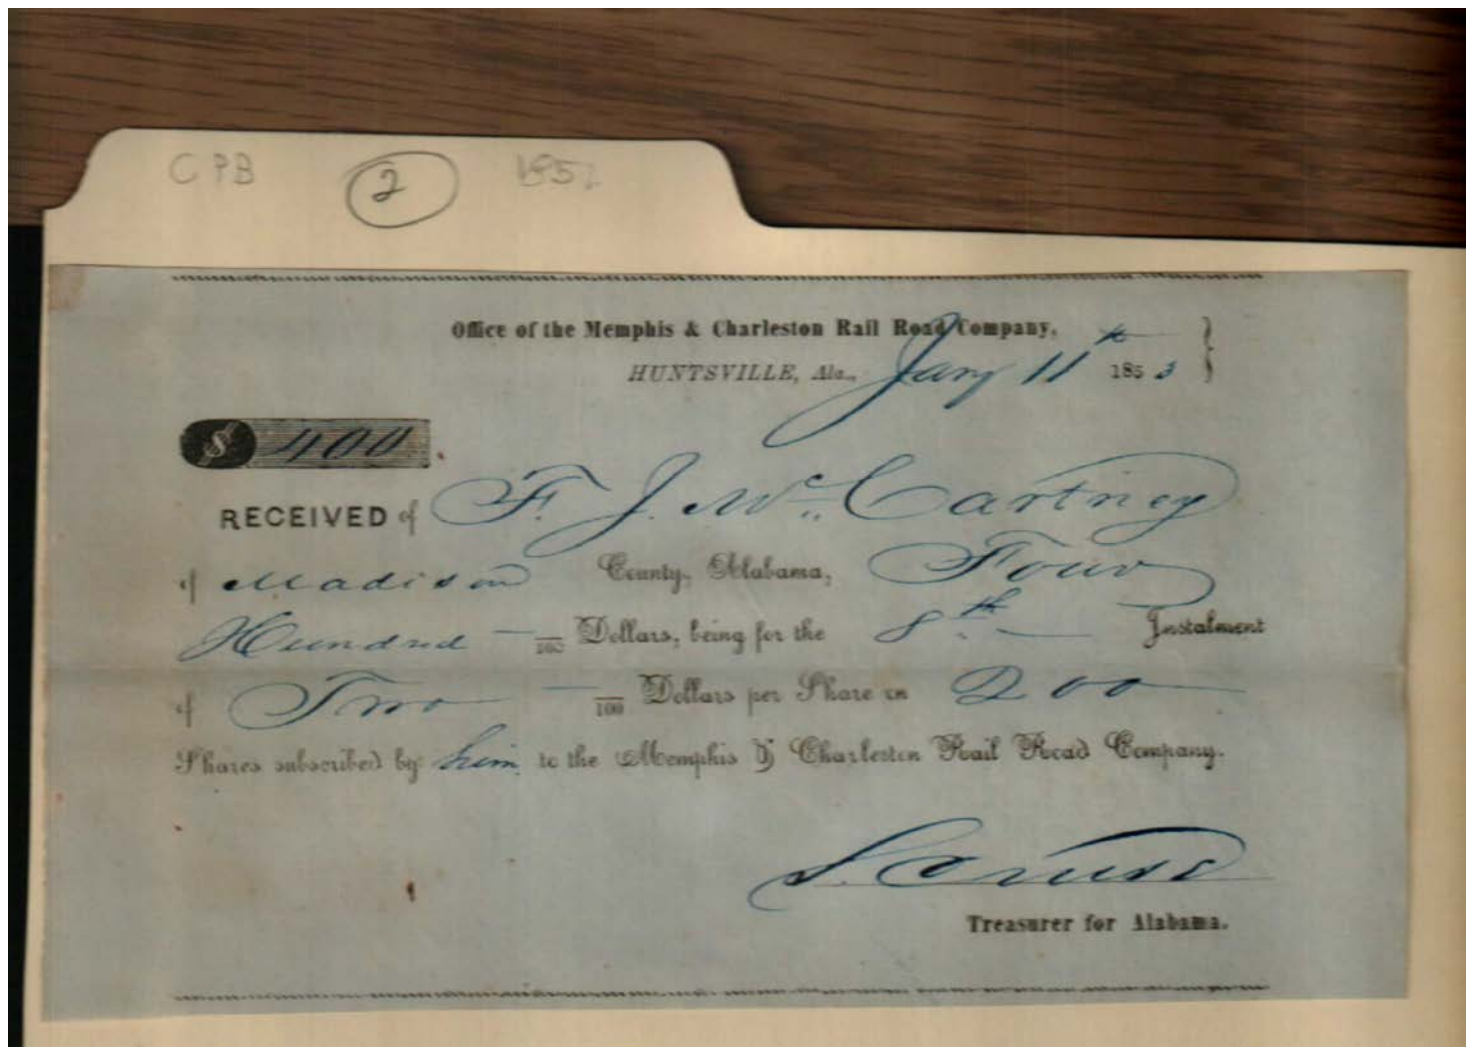 CPB 2 185
Office of the Memphis & Charleston Rail Road Company,
HUNTSVILLE, Ala., Jany 11th 1853
$ 400
RECEIVED of F. J. McCartney
of Madison County, Alabama, Four
Hundred — /100 Dollars, being for the 8th — Instalment
of Two — /100 Dollars per Share on 200
Shares subscribed by him to the Memphis & Charleston Rail Road Company.
S. Cruse
Treasurer for Alabama.